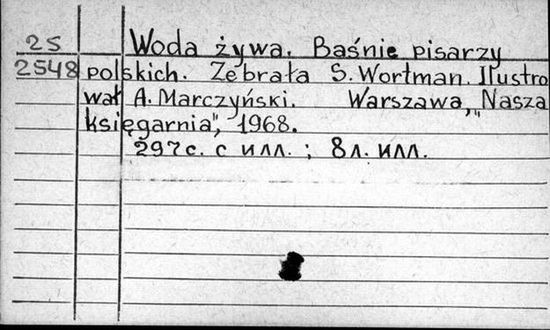 25 Woda żywa. Baśnie pisarzy
2548 polskich. Zebrała S. Wortman. Ilustro
wał A. Marczyński. Warszawa, „Nasza
księgarnia", 1968.
297с. с илл. ; 8л. илл.